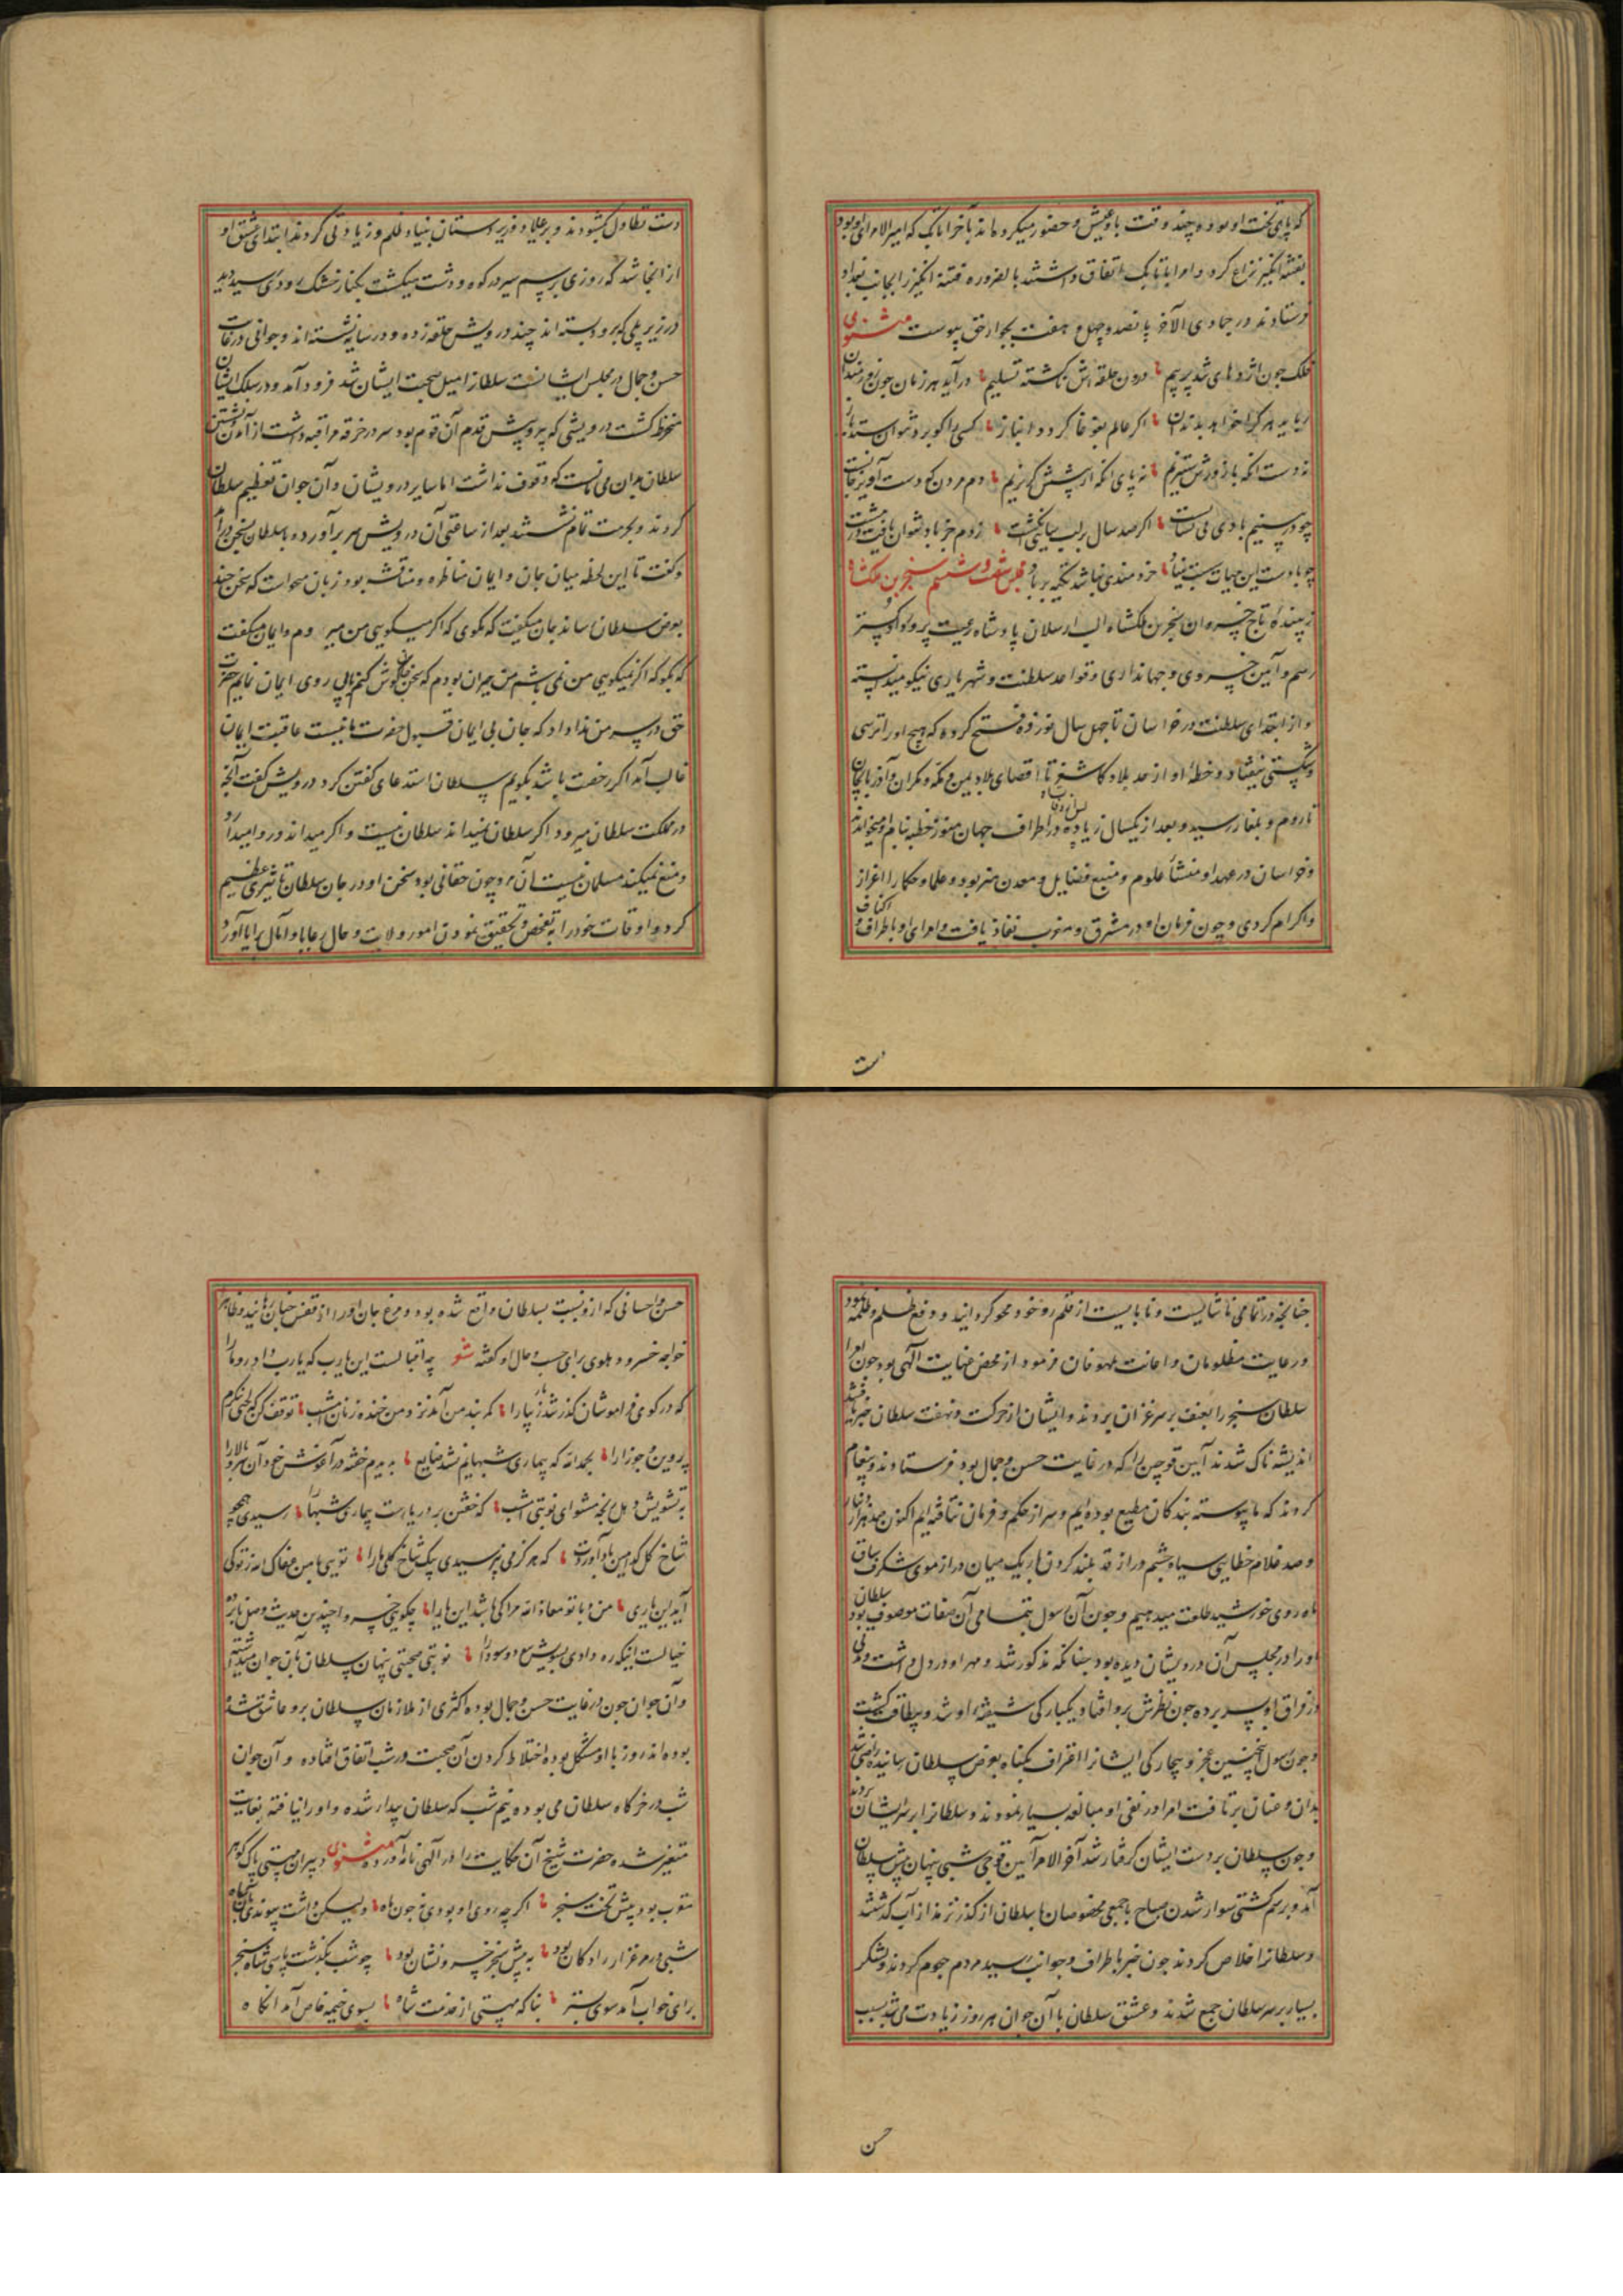 که پای تخت او بود و چند وقت با و عیش و حضور میکرد ماند تا آخر اتابک که امیر الامرای او بود
بفتنه انگیز نزاع کرد و امرا با تابک اتفاق داشتند بالضروره فتنه انگیز را بجانب بغداد
فرستادند در جمادی الآخر پانصد و چهل و هفت بجوار حق پیوست مثنوی
فلک چون اژدهای شد پر بیم درون حلقه اش گشته تسلیم در آید هر زمان چون روزمندان
رباید هر کرا خواهد بدندان اگر عالم بغوغا گردد انباز کسی را کو برد نتوان ستد باز
نه دست آنکه با زورش ستیزم نه پای آنکه از پیشش گریزم دم مردن که دست آویز جانست
چو در سینیم بادی می نشانست اگر صد سال بر لب سایی انگشت ز دم جز باد نتوان یافت در مشت
چو بادست این حیات سست بنیاد خردمندی نباشد تکیه بر باد مجلس شصت و ششم سنجر بن ملکشاه
زیبنده تاج خسروان سنجر بن ملکشاه الب ارسلان پادشاه رعیت پرور دادگستر
رسم و آیین خسروی و جهانداری و قواعد سلطنت و شهریاری نیکو میدانسته
و از ابتدای سلطنت در خراسان تا چهل سال نوزده فتح کرده که هیچ او را ترسی
و شکستی نیفتاد و خطه او از حد بلاد کاشغر تا اقصای بلاد یمن و مکه و مکران و آذربایجان
تا روم و بلغار رسید و بعد از یکسال زیاده در اطراف جهان هنوز خطبه بنام او میخواندند
و خراسان در عهد او منشأ علوم و منبع فضایل و معدن هنر بود و علما و حکما را اعزاز
و اکرام کردی و چون فرمان او در مشرق و مغرب نفاذ یافت و امرای او باطراف و اکناف
دست
دست تطاول بگشودند و بر رعایا و زیردستان بنیاد ظلم و زیادتی کردند ابتدای عشق او
از انجا شد که روزی برسم سیر در کوه و دشت میگشت بکنار خشک رودی رسید دید
در زیر پلی که برو بسته اند چند درویش حلقه زده و در سایه نشسته اند و جوانی در غایت
حسن و جمال در مجلس ایشانست سلطانرا میل صحبت ایشان شد فرود آمد و در سلک ایشان
منخرط گشت درویشی که پیر و پیش قدم آن قوم بود سر در خرقه مراقبه داشت از آمدن و نشستن
سلطان بدان می مانست که وقوف نداشت اما سایر درویشان و آن جوان تعظیم سلطان
کردند و بحرمت تمام نشستند بعد از ساعتی آن درویش سر بر آورده با سلطان بسخن در آمد
و گفت تا این لحظه میان جان و ایمان مناظره و مناقشه بود زبان میخواست که سخن چند
بعرض سلطان رساند جان میگفت که مگوی که اگر میگویی من میروم و ایمان میگفت
که بگو که اگر نمیگویی من نمی باشم من حیران بودم که سخن جان گوش کنم یا پی روی ایمان نمایم حضرت
حق در سر من ندا داد که جان بی ایمان قبول حضرت ما نیست عاقبت ایمان
غالب آمد اگر رخصت باشد بگویم سلطان استدعای گفتن کرد درویش گفت آنچه
در مملکت سلطان میرود اگر سلطان نمیداند سلطان نیست و اگر میداند و روا میدارد
و منع نمیکند مسلمان نیست آن مرد چون حقانی بود سخن او در جان سلطان تاثیری عظیم
کرد و اوقات خود را به تفحص و تحقیق نمودن امور ولایت و حال رعایا و آمال برایا آورد
چنانچه در اتمامی ناشایست و نابایست از قلمرو خود محو گردانید و دفع ظلم و ظلمه نمود
و رعایت مظلومان و اعانت ملهوفان فرمود از محض عنایت الهی بود چون امرا
سلطان سنجر را بعنف بر سر غزان بردند و ایشان از حرکت و نهضت سلطان خبردار شدند
اندیشه ناک شدند آیین قوچین را که در غایت حسن و جمال بود فرستادند و پیغام
کردند که ما پیوسته بندگان مطیع بوده ایم و سر از حکم و فرمان نتافته ایم اکنون صد هزار دینار
و صد غلام خطایی سیاه چشم دراز قد بلند گردن باریک میان دراز موی شگرف ساق
ماه روی خورشید طلعت میدهیم و چون آن رسول بتمامی آن صفات موصوف بود سلطان
او را در مجلس آن درویشان دیده بود چنانکه مذکور شد و مهر او در دل داشت و مدتی
در فراق او بسر برده چون نظرش برو افتاد یکبارگی شیفته او شد و بیطاقت گشت
و چون رسول اینچنین عجز و بیچارگی ایشانرا اعتراف بگناه بعرض سلطان رسانیده راضی شد
بدان و عنان بر تافت امرا در نفی او مبالغه بسیار نمودند و سلطانرا بر سر ایشان بردند
و چون سلطان بر دست ایشان گرفتار شد آخر الامر آیین قوچی شبی پنهان پیش سلطان
آمد و برسم کشتی سوار شدن صباح با جمعی مخصوصان با سلطانی از گذر ترمذ از آب گذشتند
و سلطانرا خلاص کردند چون خبر باطراف و جوانب رسید مردم هجوم کردند و لشکر
بسیار بر سر سلطان جمع شدند و عشق سلطان با آن جوان هر روز زیادت می شد بسبب
حسن
حسن و احسانی که ازو نسبت بسلطان واقع شده بود و مرغ جان او را از قفس چنان رهانید و ظاهر
خواجه خسرو دهلوی برای حسب حال او گفته شعر چه اقبالست این یارب که یارب داد رو ما را
که در کوی فراموشان گذر شد یار زیبا را کمر بند من آمد نزد من خنده زنان امشب توقف کن که لختی بنگرم
پروین و جوزا را بحمدالله که بیماری شبهایم نشد ضایع بدیدم خفته در آغوشش رخ و آن سرو بالا را
به تشویش دهل رنجه مشو ای نوبتی امشب که خفتن بر در یارست بیماری شبها رسیدی همچو
شاخ گل کدامین باد آوردت که هرگز می نپرسیدی پیک شاخ گلی ما را تویی با من معاذ الله ز تو کی
آید این یاری من و با تو معاذ الله مرا کی باشد این یارا چگویی خسروا چندین حدیث وصل یار خود
خیالست اینکه ره دادی بسویش دوسودا را نوبتی صحبتی پنهان سلطان بآن جوان میداشته
و آن جوان چون در غایت حسن و جمال بوده اکثری از ملازمان سلطان برو عاشق شده
بوده اند روز با او مشکل بوده اختلاط کردن آن صحبت در شب اتفاق افتاده و آن جوان
شب در خرگاه سلطان می بوده نیم شب که سلطان بیدار شده و او را نیافته بغایت
متغیر شده حضرت شیخ آن حکایت را در آلهی نامه آورده مثنوی دبیران مهستی پاک گوهر
مقرب بود پیش تخت سنجر اگر چه روی او بودی نه چون ماه ولیکن داشت پیوندی بآن شاه
شبی در مرغزار رادکان بود به پیش سنجر خسرو نشان بود چو شب بگذشت پاسی شاه سنجر
برای خواب آمد سوی بستر بناگه مهستی از خدمت شاه بسوی خیمه خاص آمد آنگاه